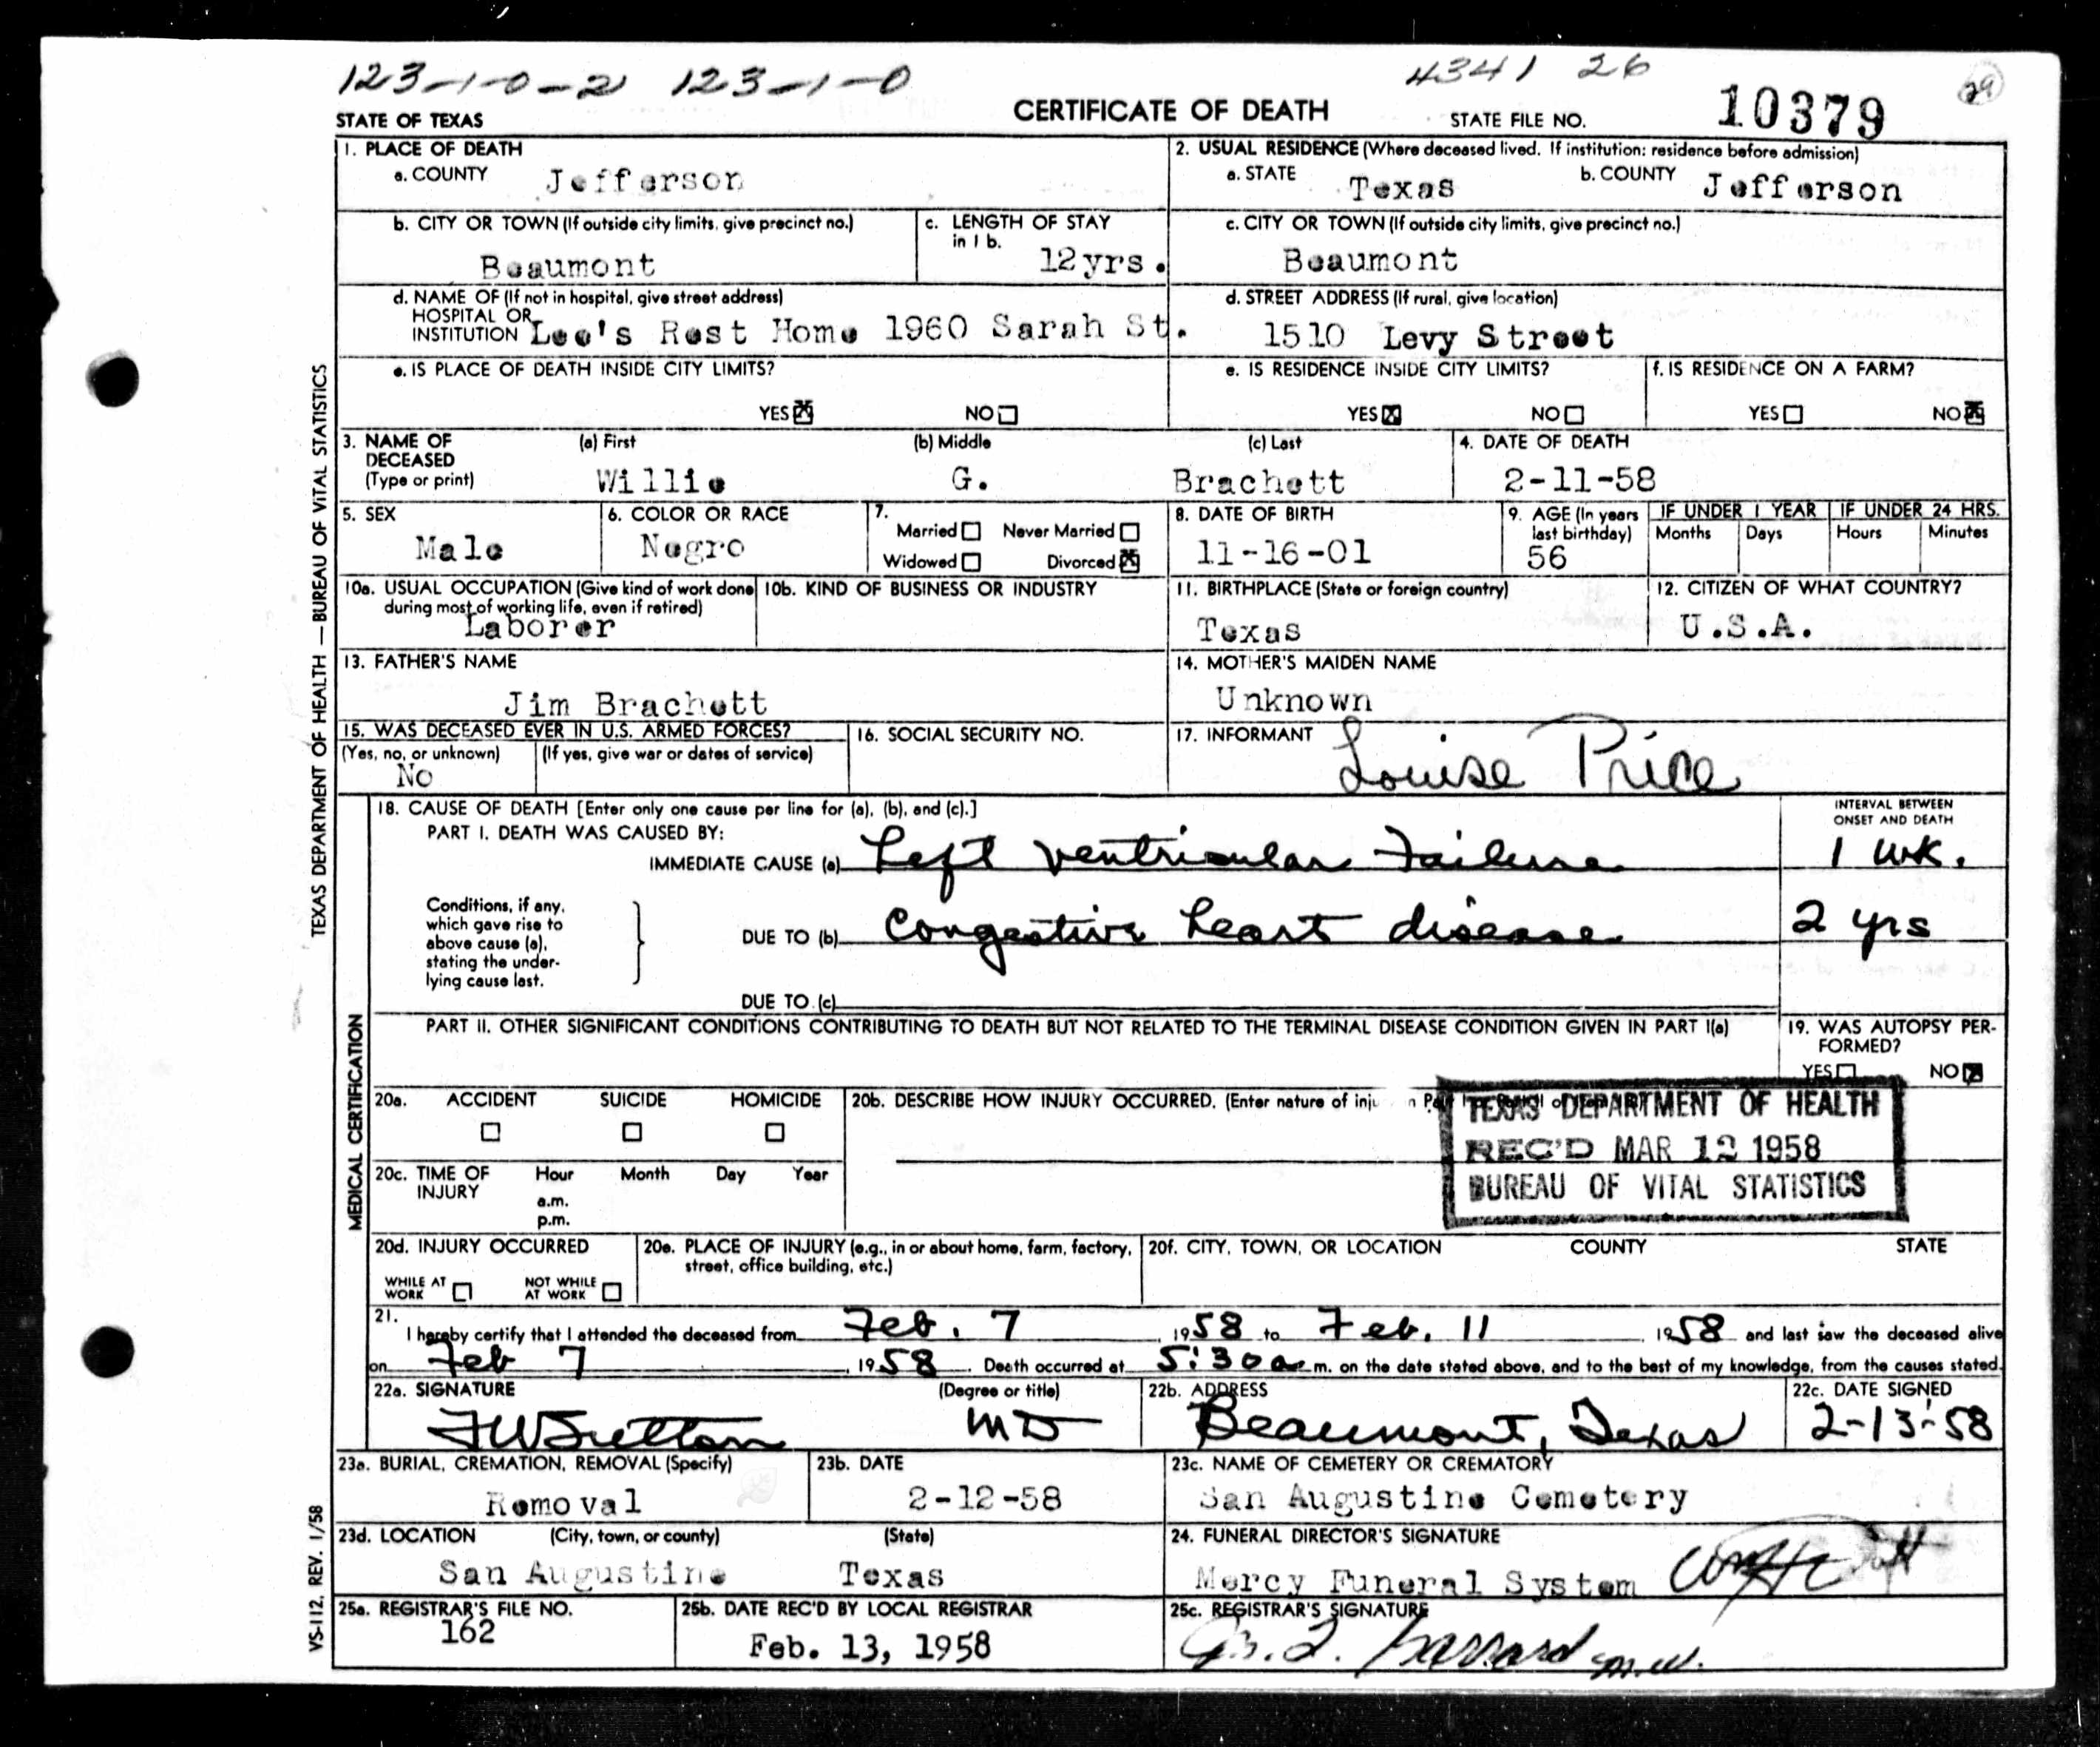 123-1-0-2 123-1-0 4341 26 29
STATE OF TEXAS CERTIFICATE OF DEATH STATE FILE NO. 10379
1. PLACE OF DEATH
a. COUNTY Jefferson
2. USUAL RESIDENCE (Where deceased lived. If institution: residence before admission)
a. STATE Texas b. COUNTY Jefferson
b. CITY OR TOWN (If outside city limits, give precinct no.)
Beaumont
c. LENGTH OF STAY
in 1 b.
12yrs.
c. CITY OR TOWN (If outside city limits, give precinct no.)
Beaumont
d. NAME OF (If not in hospital, give street address)
HOSPITAL OR
INSTITUTION Lee's Rest Home 1960 Sarah St.
d. STREET ADDRESS (If rural, give location)
1510 Levy Street
e. IS PLACE OF DEATH INSIDE CITY LIMITS?
YES☒ NO☐
e. IS RESIDENCE INSIDE CITY LIMITS?
YES☒ NO☐
f. IS RESIDENCE ON A FARM?
YES☐ NO☒
3. NAME OF
DECEASED
(Type or print)
(a) First (b) Middle (c) Last
Willie G. Brachett
4. DATE OF DEATH
2-11-58
5. SEX
Male
6. COLOR OR RACE
Negro
7.
Married☐ Never Married☐
Widowed☐ Divorced☒
8. DATE OF BIRTH
11-16-01
9. AGE (In years
last birthday)
56
IF UNDER 1 YEAR
Months Days
IF UNDER 24 HRS.
Hours Minutes
10a. USUAL OCCUPATION (Give kind of work done
during most of working life, even if retired)
Laborer
10b. KIND OF BUSINESS OR INDUSTRY
11. BIRTHPLACE (State or foreign country)
Texas
12. CITIZEN OF WHAT COUNTRY?
U.S.A.
13. FATHER'S NAME
Jim Brachett
14. MOTHER'S MAIDEN NAME
Unknown
15. WAS DECEASED EVER IN U.S. ARMED FORCES?
(Yes, no, or unknown) (If yes, give war or dates of service)
No
16. SOCIAL SECURITY NO.
17. INFORMANT Louise Price
18. CAUSE OF DEATH [Enter only one cause per line for (a), (b), and (c).]
PART I. DEATH WAS CAUSED BY:
IMMEDIATE CAUSE (a) Left ventricular Failure
INTERVAL BETWEEN
ONSET AND DEATH
1 wk.
Conditions, if any,
which gave rise to
above cause (a),
stating the under-
lying cause last.
DUE TO (b) Congestive heart disease 2 yrs
DUE TO (c)
PART II. OTHER SIGNIFICANT CONDITIONS CONTRIBUTING TO DEATH BUT NOT RELATED TO THE TERMINAL DISEASE CONDITION GIVEN IN PART I(a)
19. WAS AUTOPSY PER-
FORMED?
YES☐ NO☒
20a. ACCIDENT SUICIDE HOMICIDE
☐ ☐ ☐
20b. DESCRIBE HOW INJURY OCCURRED. (Enter nature of
TEXAS DEPARTMENT OF HEALTH
REC'D MAR 12 1958
BUREAU OF VITAL STATISTICS
20c. TIME OF
INJURY
Hour Month Day Year
a.m.
p.m.
20d. INJURY OCCURRED
WHILE AT
WORK ☐
NOT WHILE
AT WORK ☐
20e. PLACE OF INJURY (e.g., in or about home, farm, factory,
street, office building, etc.)
20f. CITY, TOWN, OR LOCATION COUNTY STATE
21.
I hereby certify that I attended the deceased from Feb. 7, 1958 to Feb. 11, 1958 and last saw the deceased alive
on Feb 7, 1958. Death occurred at 5:30 a. m. on the date stated above, and to the best of my knowledge, from the causes stated.
22a. SIGNATURE (Degree or title)
FW Sutton MD
22b. ADDRESS
Beaumont, Texas
22c. DATE SIGNED
2-13-58
23a. BURIAL, CREMATION, REMOVAL (Specify)
Removal
23b. DATE
2-12-58
23c. NAME OF CEMETERY OR CREMATORY
San Augustine Cemetery
23d. LOCATION (City, town, or county) (State)
San Augustine Texas
24. FUNERAL DIRECTOR'S SIGNATURE
Mercy Funeral System
25a. REGISTRAR'S FILE NO.
162
25b. DATE REC'D BY LOCAL REGISTRAR
Feb. 13, 1958
25c. REGISTRAR'S SIGNATURE
m.w.
TEXAS DEPARTMENT OF HEALTH — BUREAU OF VITAL STATISTICS
MEDICAL CERTIFICATION
VS-112, REV. 1/58